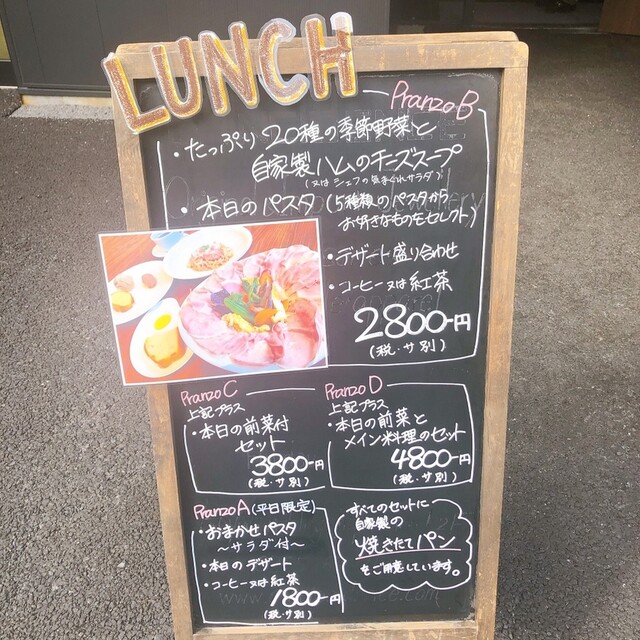 LUNCH
Pranzo B
・たっぷり20種の季節野菜と
自家製ハムのチーズスープ
(又はシェフの気まぐれサラダ)
・本日のパスタ(5種類のパスタから
お好きなものをセレクト)
・デザート盛り合わせ
・コーヒー又は紅茶
2800円
(税・サ別)
Pranzo C
上記プラス
・本日の前菜付
セット
3800円
(税・サ別)
Pranzo D
上記プラス
・本日の前菜と
メイン料理のセット
4800円
(税・サ別)
Pranzo A (平日限定)
・おまかせパスタ
～サラダ付～
・本日のデザート
・コーヒー又は紅茶
1800円
(税・サ別)
すべてのセットに
自家製の
焼きたてパン
をご用意しています。